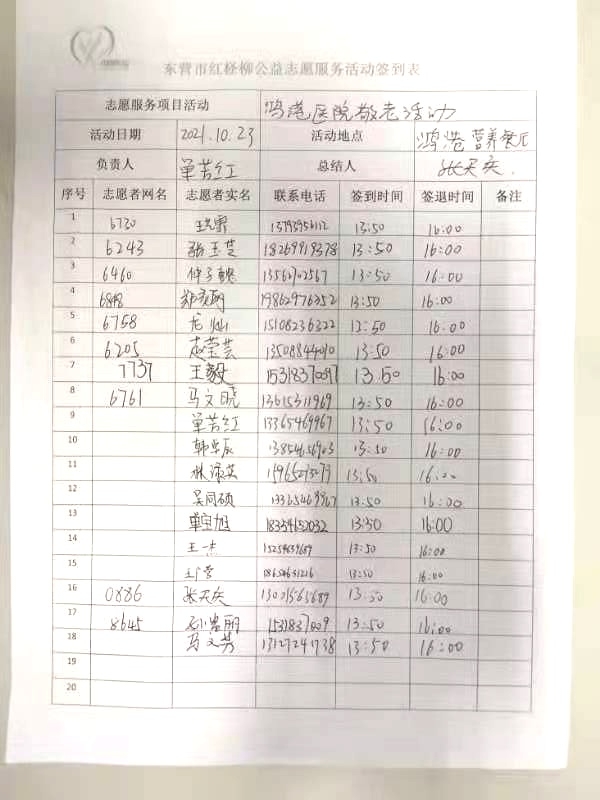 东营市红柽柳公益志愿服务活动签到表
志愿服务项目活动 鸿港医院敬老活动
活动日期 2021.10.23 活动地点 鸿港营养餐厅
负责人 单苦红 总结人 张天庆
序号 志愿者网名 志愿者实名 联系电话 签到时间 签退时间 备注
1 6730 13793956112 13:50 16:00
2 6243 张玉芝 18269919378 13:50 16:00
3 6460 13562902567 13:50 16:00
4 19862976352 13:50 16:00
5 6758 龙灿 15108236322 13:50 16:00
6 6205 赵莹芸 13:50 16:00
7 7737 王毅 15318370097 13.50 16:00
8 6761 马文晓 13615311969 13:50 16:00
9 单苦红 13365469967 13:50 16:00
10 13:50 16:00
11 13:50 16:00
12 吴同硕 13365469967 13:50 16:00
13 单宝旭 18354652032 13:50 16:00
14 王一杰 13:50 16:00
15 13:50 16:00
16 0886 张天庆 13:50 16:00
17 8645 1531837009 13:50 16:00
18 马文芳 13127241738 13:50 16:00
19
20